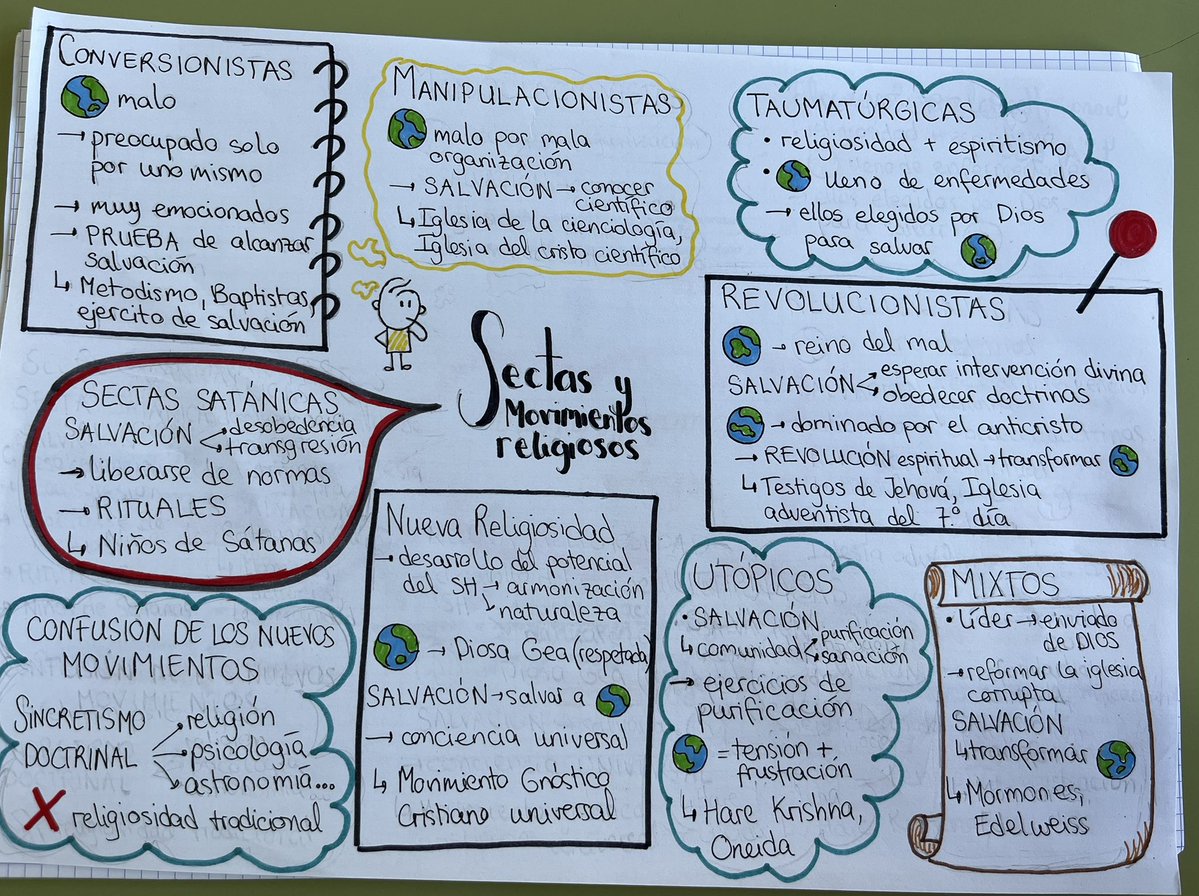 CONVERSIONISTAS
malo
→ preocupado solo
por uno mismo
→ muy emocionados
→ PRUEBA de alcanzar
salvación
↳ Metodismo, Baptistas,
ejercito de salvación
MANIPULACIONISTAS
malo por mala
organización
→ SALVACIÓN → conocer
científico
↳ Iglesia de la cienciología,
Iglesia del cristo científico
TAUMATÚRGICAS
• religiosidad + espiritismo
• lleno de enfermedades
→ ellos elegidos por Dios
para salvar
REVOLUCIONISTAS
→ reino del mal
SALVACIÓN esperar intervención divina
obedecer doctrinas
→ dominado por el anticristo
→ REVOLUCIÓN espiritual → transformar
↳ Testigos de Jehová, Iglesia
adventista del 7.º día
Sectas y
Movimientos
religiosos
SECTAS SATÁNICAS
SALVACIÓN desobedencia
transgresión
→ liberarse de normas
→ RITUALES
↳ Niños de Sátanas
CONFUSIÓN DE LOS NUEVOS
MOVIMIENTOS
SINCRETISMO
DOCTRINAL
religión
psicología
astronomía...
X religiosidad tradicional
Nueva Religiosidad
→ desarrollo del potencial
del SH → armonización
naturaleza
→ Diosa Gea (respetada)
SALVACIÓN → salvar a
→ conciencia universal
↳ Movimiento Gnóstico
Cristiano universal
UTÓPICOS
• SALVACIÓN
↳ comunidad purificación
sanación
→ ejercicios de
purificación
= tensión +
frustración
↳ Hare Krishna,
Oneida
MIXTOS
• Líder → enviado
de DIOS
→ reformar la iglesia
corrupta
SALVACIÓN
↳ transformar
↳ Mormones,
Edelweiss